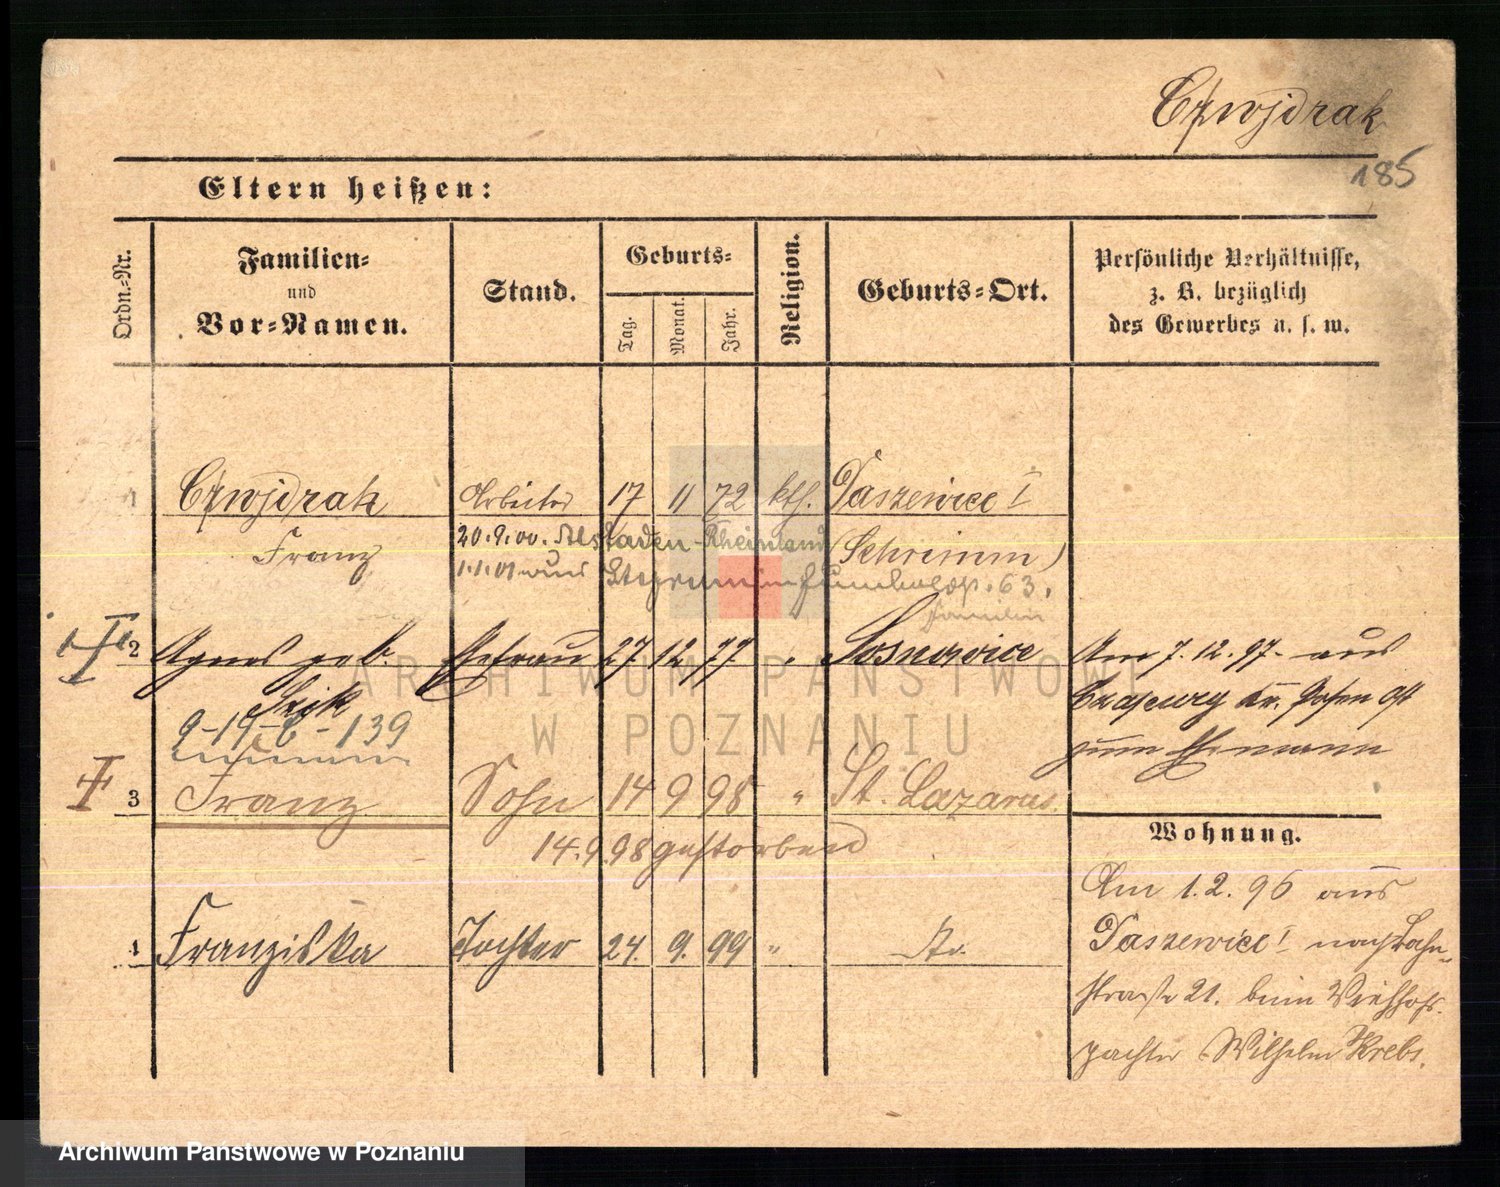 Czwojdrak
185
Eltern heißen:
Ordn.-Nr.
Familien-
und
Vor-Namen.
Stand.
Geburts-
Tag.
Monat.
Jahr.
Religion.
Geburts-Ort.
Persönliche Verhältnisse,
z. B. bezüglich
des Gewerbes u. s. w.
1 Czwojdrak Arbeiter 17 11 72 kth. Daszewice I
Franz
20.9.00. Alstaden-Rheinland
(Schrimm)
1.1.01 aus 63.
Familie
2 Agnes geb. Ehefrau 27. 12. 77. " Sosnowice
9-19-8-139
Am 7. 12. 97. aus
Kr. Posen Ost
zum Ehemann
3 Franz Sohn 14 9 98 " St. Lazarus.
14.9.98 gestorben
4 Franziska Tochter 24. 9. 99 "
Wohnung.
Am 1.2.96 aus
Daszewice I nach Bahn-
straße 21. beim Viehhofs-
pächter Wilhelm Krebs.
ARCHIWUM PAŃSTWOWE
W POZNANIU
Archiwum Państwowe w Poznaniu